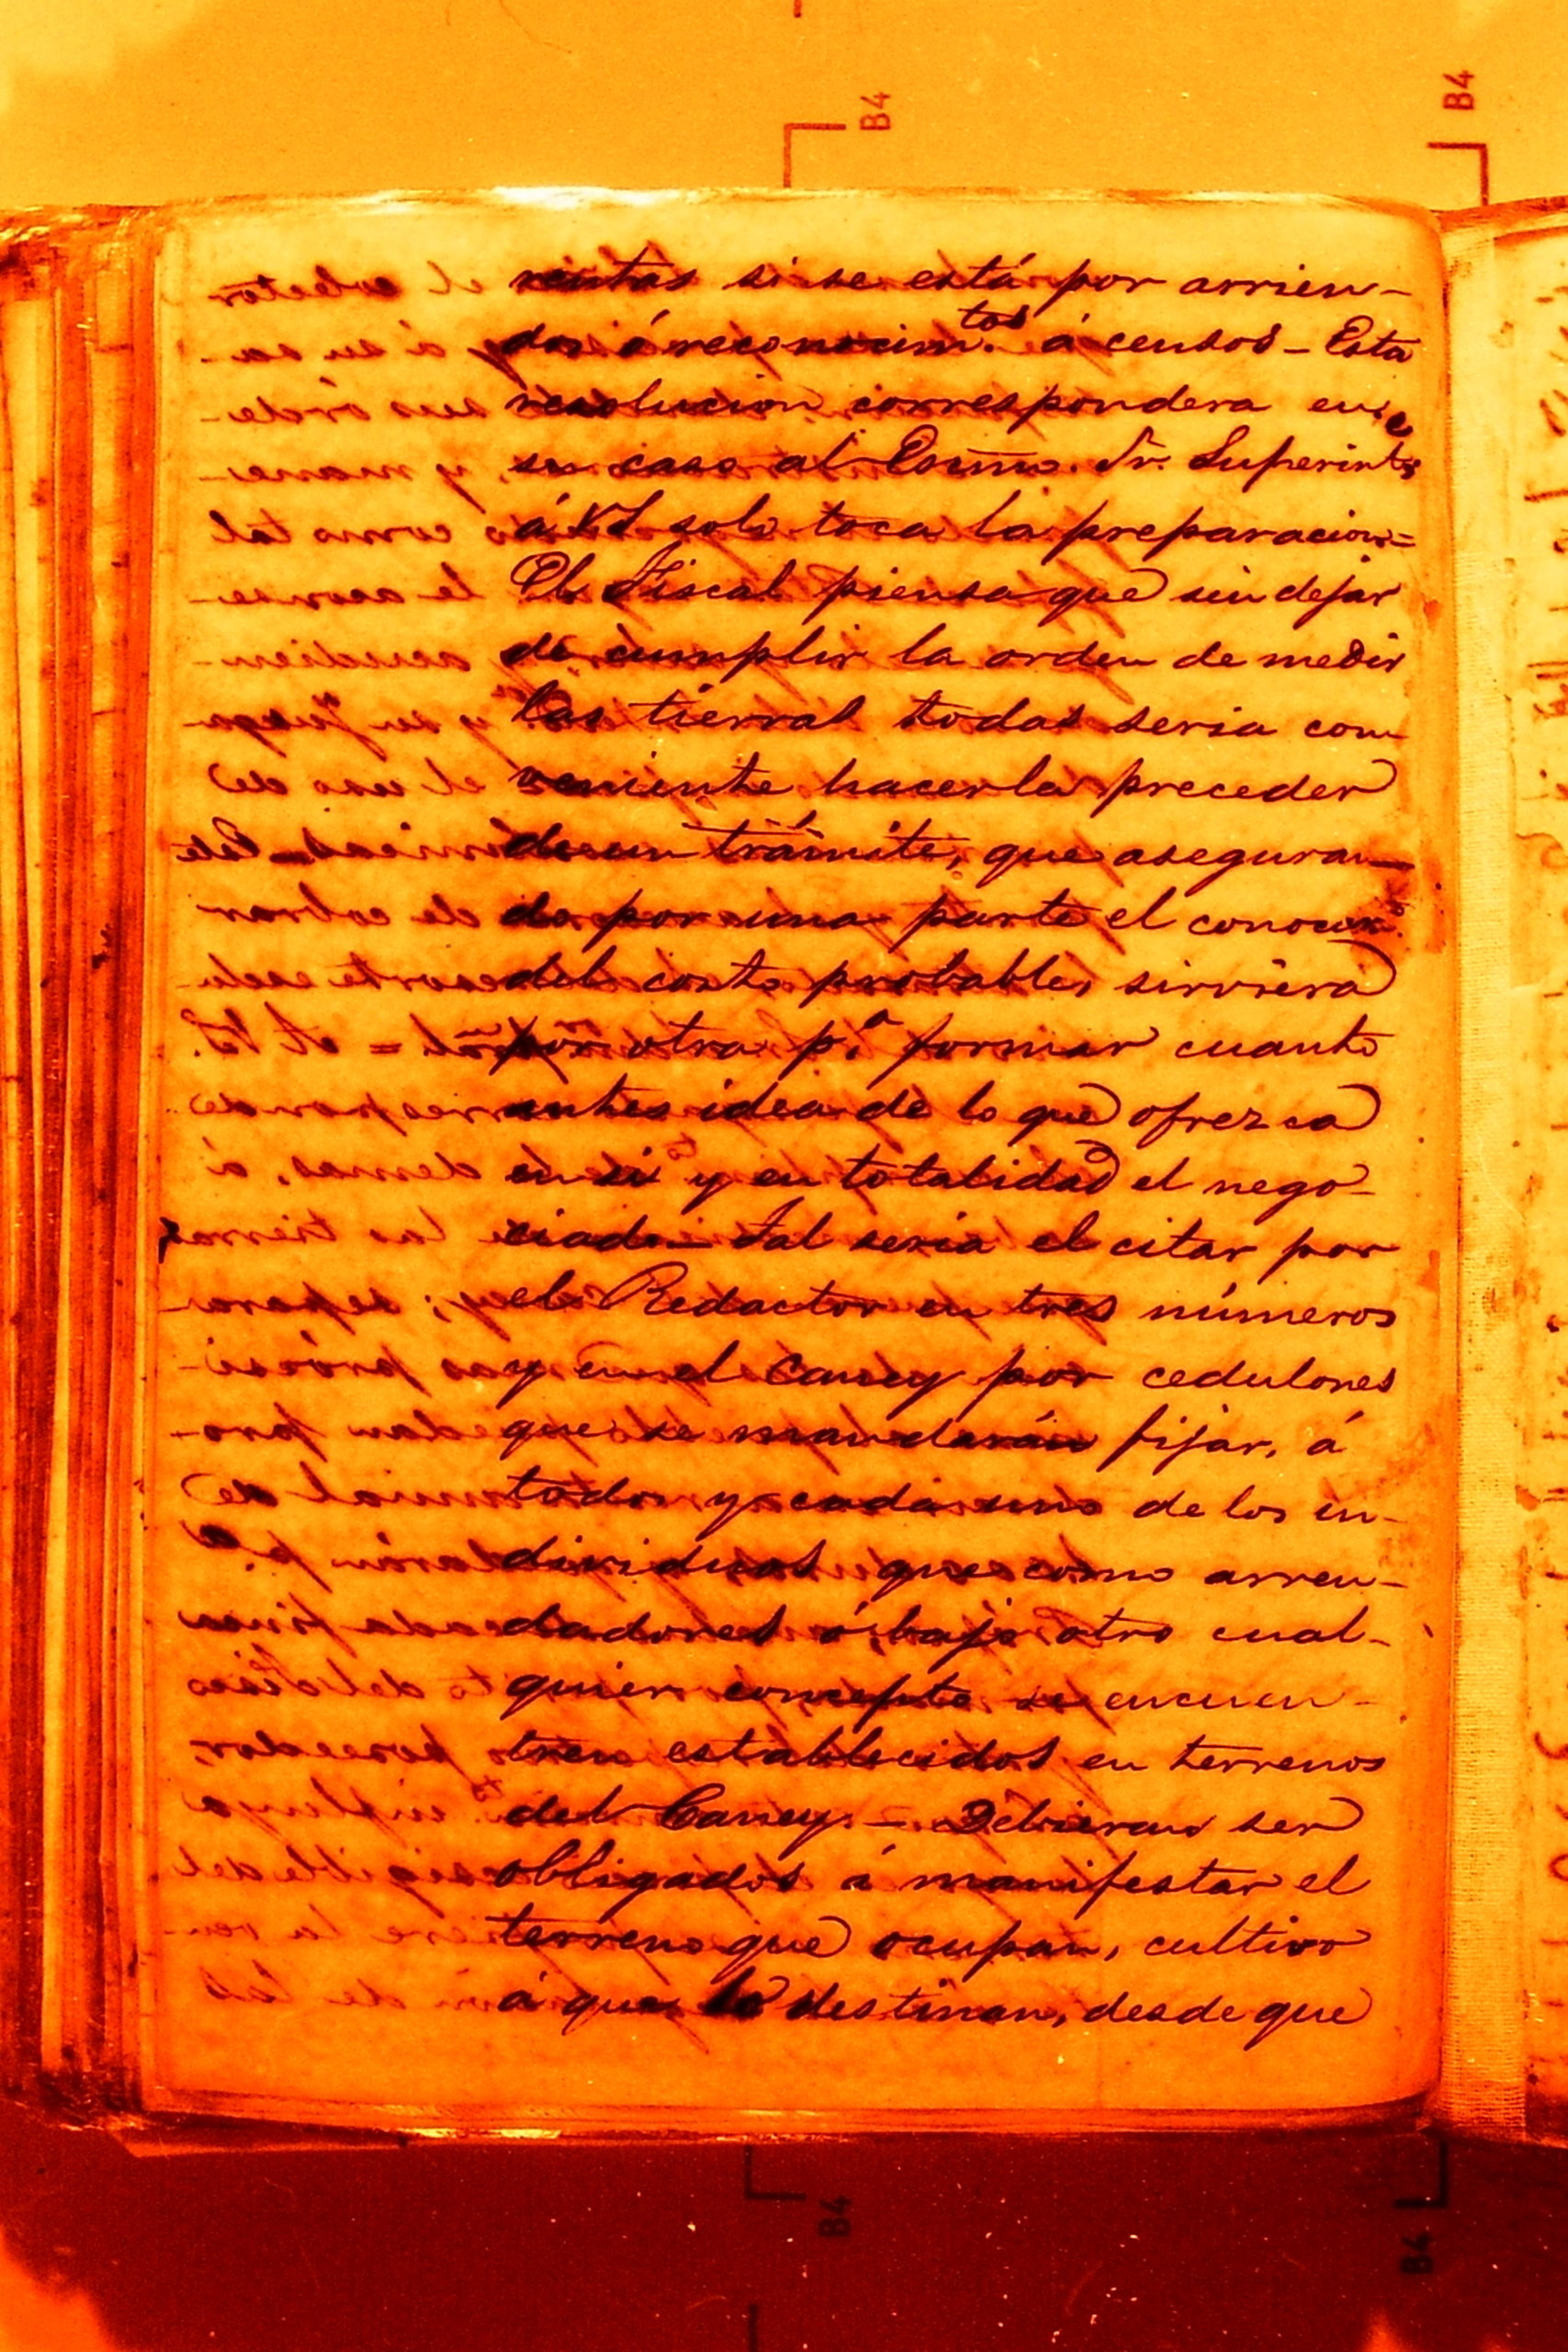 B4
B4
rentas si se está por arrien-
dos ó reconocim.tos á censos - Esta
resolucion correspondera en
su caso al Escmo. Sr. Superint.e
á VS solo toca la preparacion=
El Fiscal piensa que sin dejar
de cumplir la orden de medir
las tierras todas seria con
veniente hacerla preceder
de un trámite, que aseguran-
do por una parte el conocim.to
del costo probable, sirviera
por otra p.a formar cuanto
antes idea de lo que ofrezca
en si y en totalidad el nego-
ciado - Tal seria el citar por
el Redactor en tres números
y en el Caney por cedulones
que se mandarán fijar, á
todos y cada uno de los in-
dividuos que como arren-
dadores ó bajo otro cual-
quier concepto se encuen-
tren establecidos en terrenos
del Caney. - Debieran ser
obligados á manifestar el
terreno que ocupan, cultivo
á que lo destinan, desde que
B4
B4